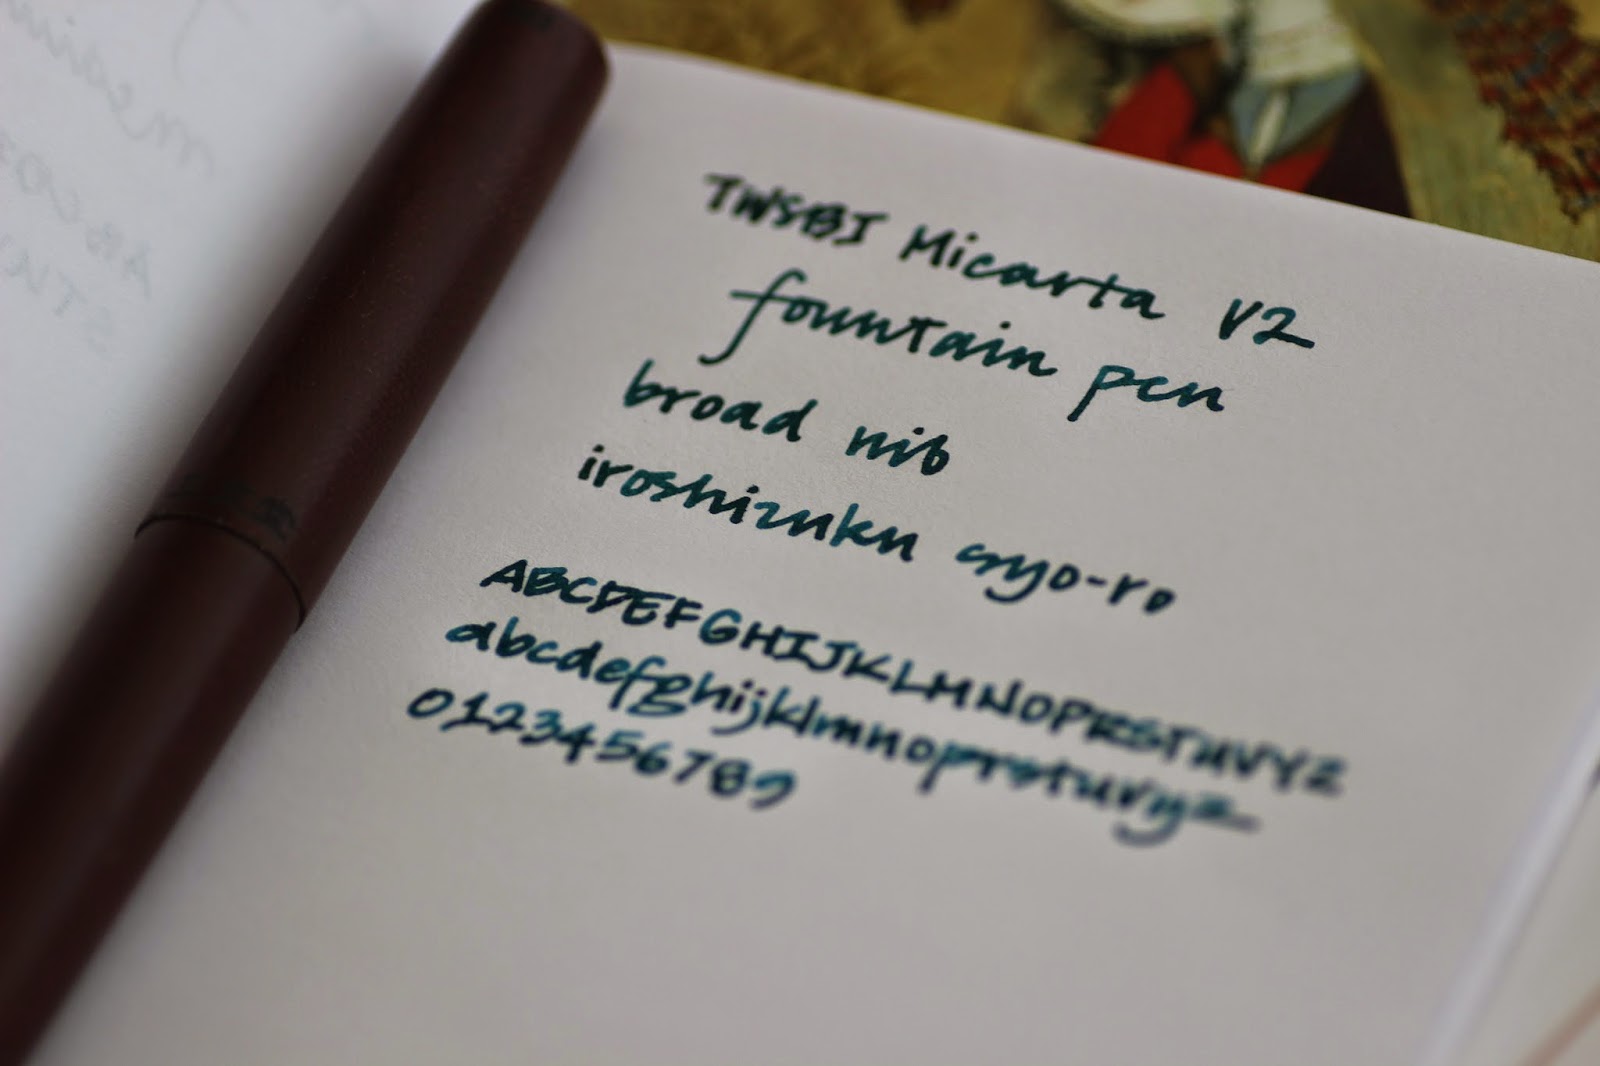 TWSBI Micarta V2
fountain pen
broad nib
iroshizuku syo-ro
ABCDEFGHIJKLMNOPRSTUVYZ
abcdefghijklmnoprstuvyz
0123456789